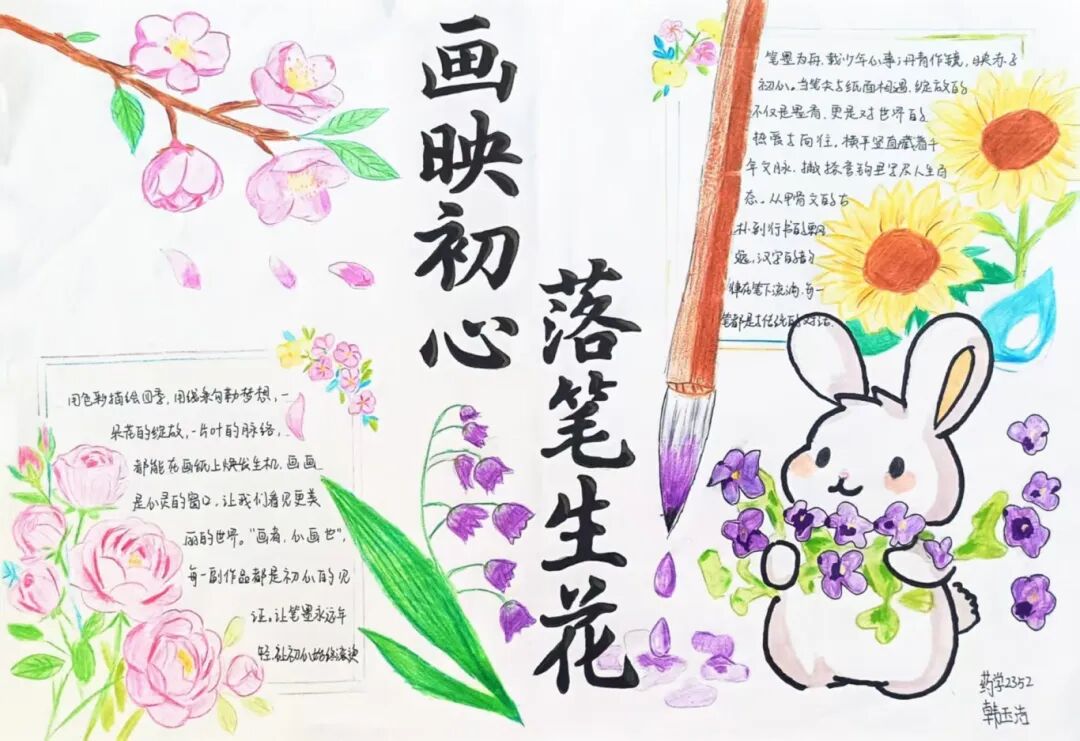 画映初心
落笔生花
笔墨为舟,载少年心事;丹青作镜,映
初心。当笔尖与纸面相遇,绽放的
不仅是墨香,更是对世界的
热爱与向往,横平竖直藏着千
年文脉,撇捺弯钩
态。从甲骨文的古
朴到行书的飘
逸,汉字的
在笔下流淌,每一
笔都是与传统的对话.
用色彩描绘四季,用线条勾勒梦想,一
朵花的绽放,一片叶的脉络,
都能在画纸上焕发生机,画画
是心灵的窗口,让我们看见更美
丽的世界。"画者,心画也",
每一副作品都是初心的见
证。让笔墨永远年
轻,让初心始终滚烫
药学2352
韩玉洁